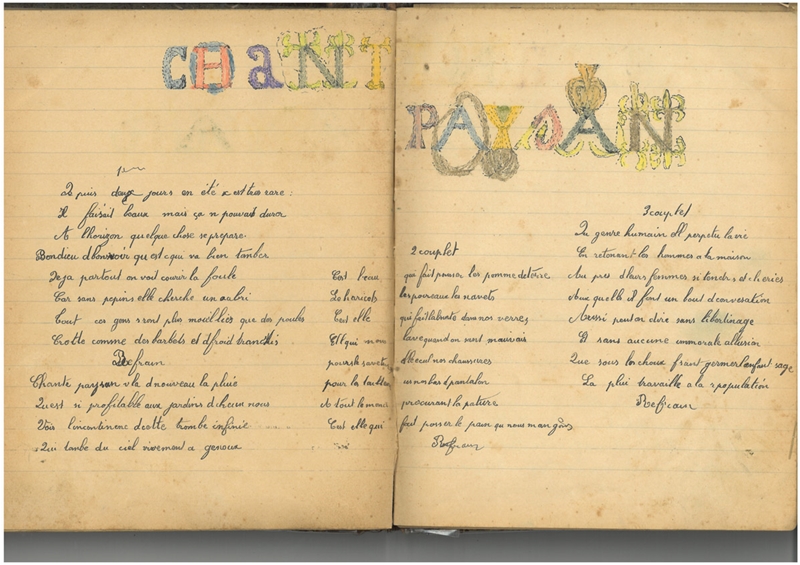 CHANT
PAYSAN
Depuis deux jours en été s est tres rare :
Il faisait beaux mais ça n pouvait durer
A lhorizon quelque chose se prepare
Bondieu d bonsoir qu est c qui va bien tomber
Deja partout on voit courir la foule
Car sans pepins elle cherche un aabri
Tout ces gens s ront plus mouillées que des poules
Crotté comme des barbets et d froid transis
Refrain
Chante paysan v la d nouveau la pluie
Qui est si profitable aux jardins d chacun nous
Vois l incontinenc d cette trombe infinie
Qui tombe du ciel vivement a genoux
C est l eau
Le haricots
C est elle
Et qui nous
pour la laitue
A tout le monde
C est elle qui
2 couplet
qui fait pousser les pomme de terre
les poireaux les navets
qui fait labsinte dans nos verres
lave quand on sont mauvais
nos chaussures
un nos bas d pantalon
procurant la pature
fait pousser le pain qu nous mangons
Refrain
3 couplet
Du genre humain ell perpetu la vie
En retenant les hommes a la maison
Au pres d leurs femmes si tendres et cheries
Avec quelle il font un bout d conversation
Aussi peut on dire sans libertinage
Et sans aucune immorale allusion
Que sous les choux f sant germer l enfant sage
La plui travaille a la r population
Refrain